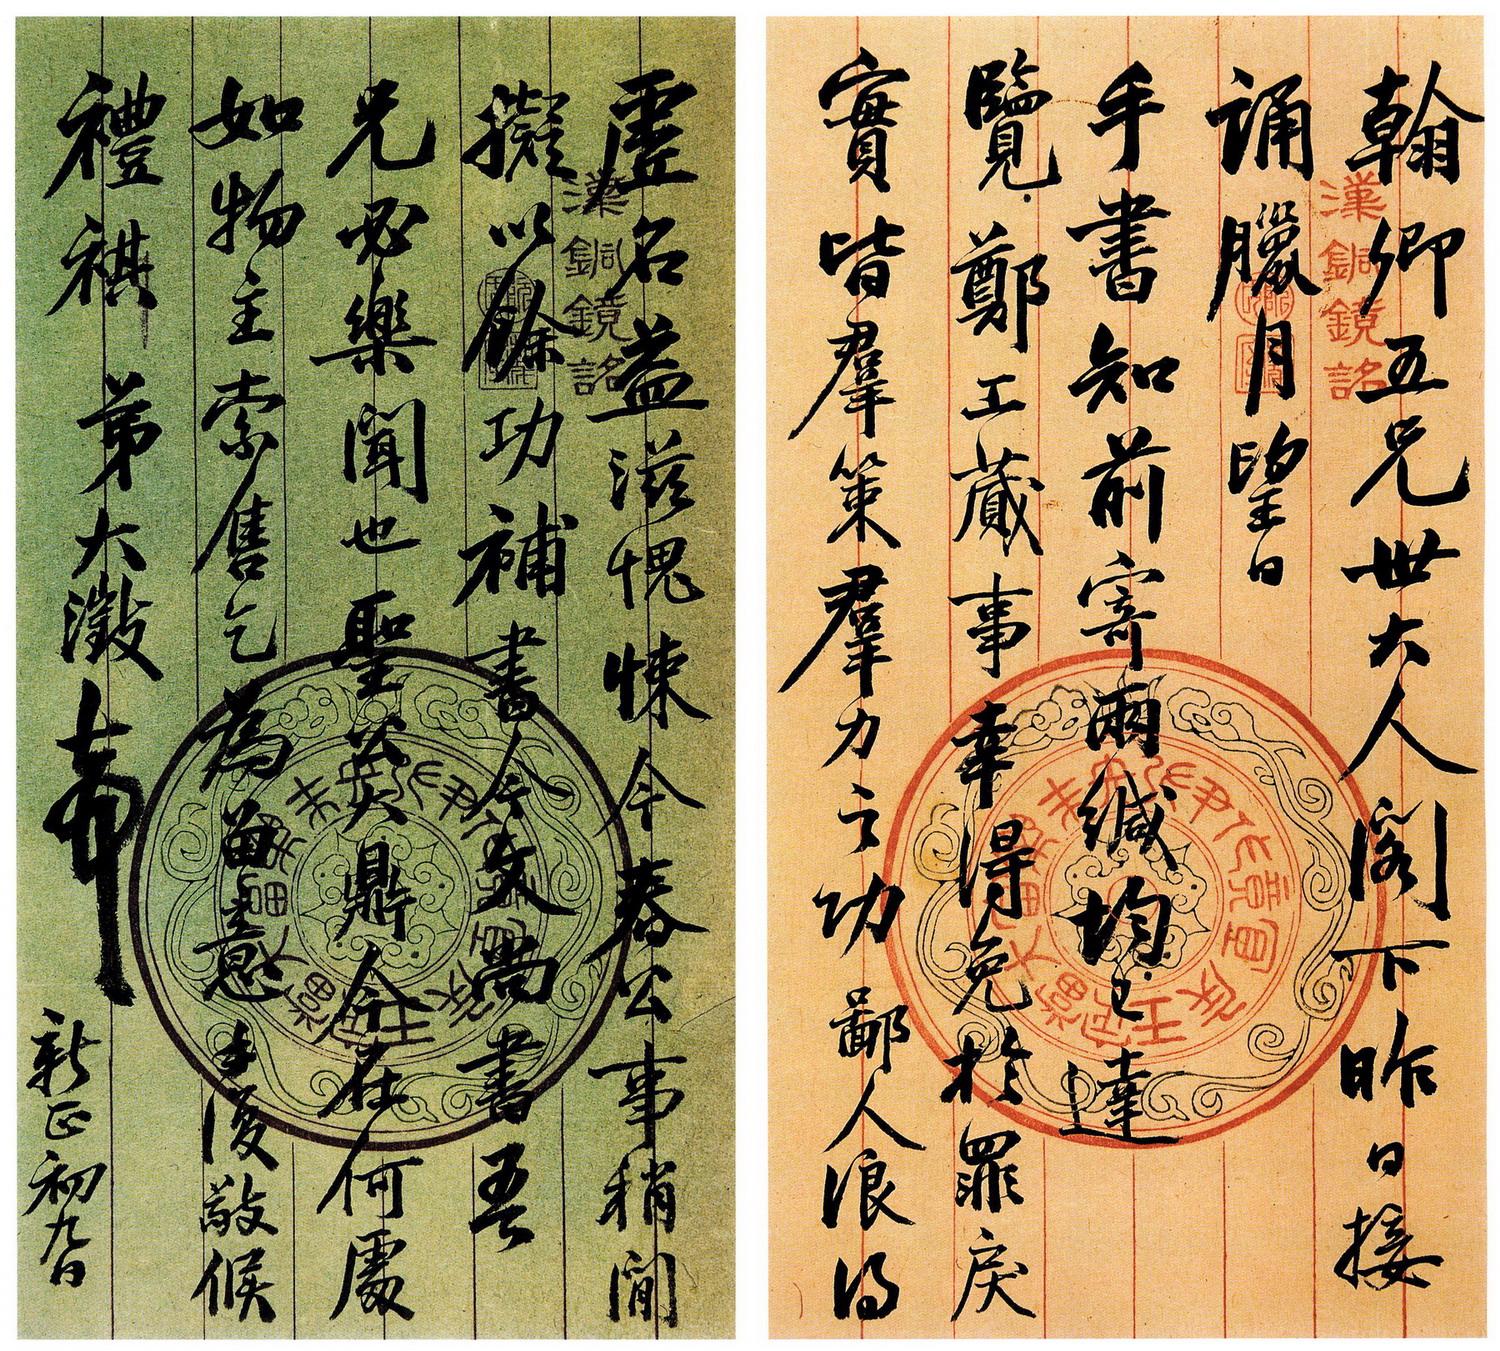 漢銅鏡銘
翰卿五兄世大人閣下昨日接
誦臘月望日
手書知前寄兩緘均已達
覽鄭工蕆事幸得免於罪戾
實皆羣策羣力之功鄙人浪得
漢銅鏡銘
虛名益滋愧悚今春公事稍閒
擬以餘功補書今文尚書吾
兄必樂聞也聖公大鼎今在何處
如物主索售乞為留意手復敬候
禮祺弟大澂頓首
新正初九日